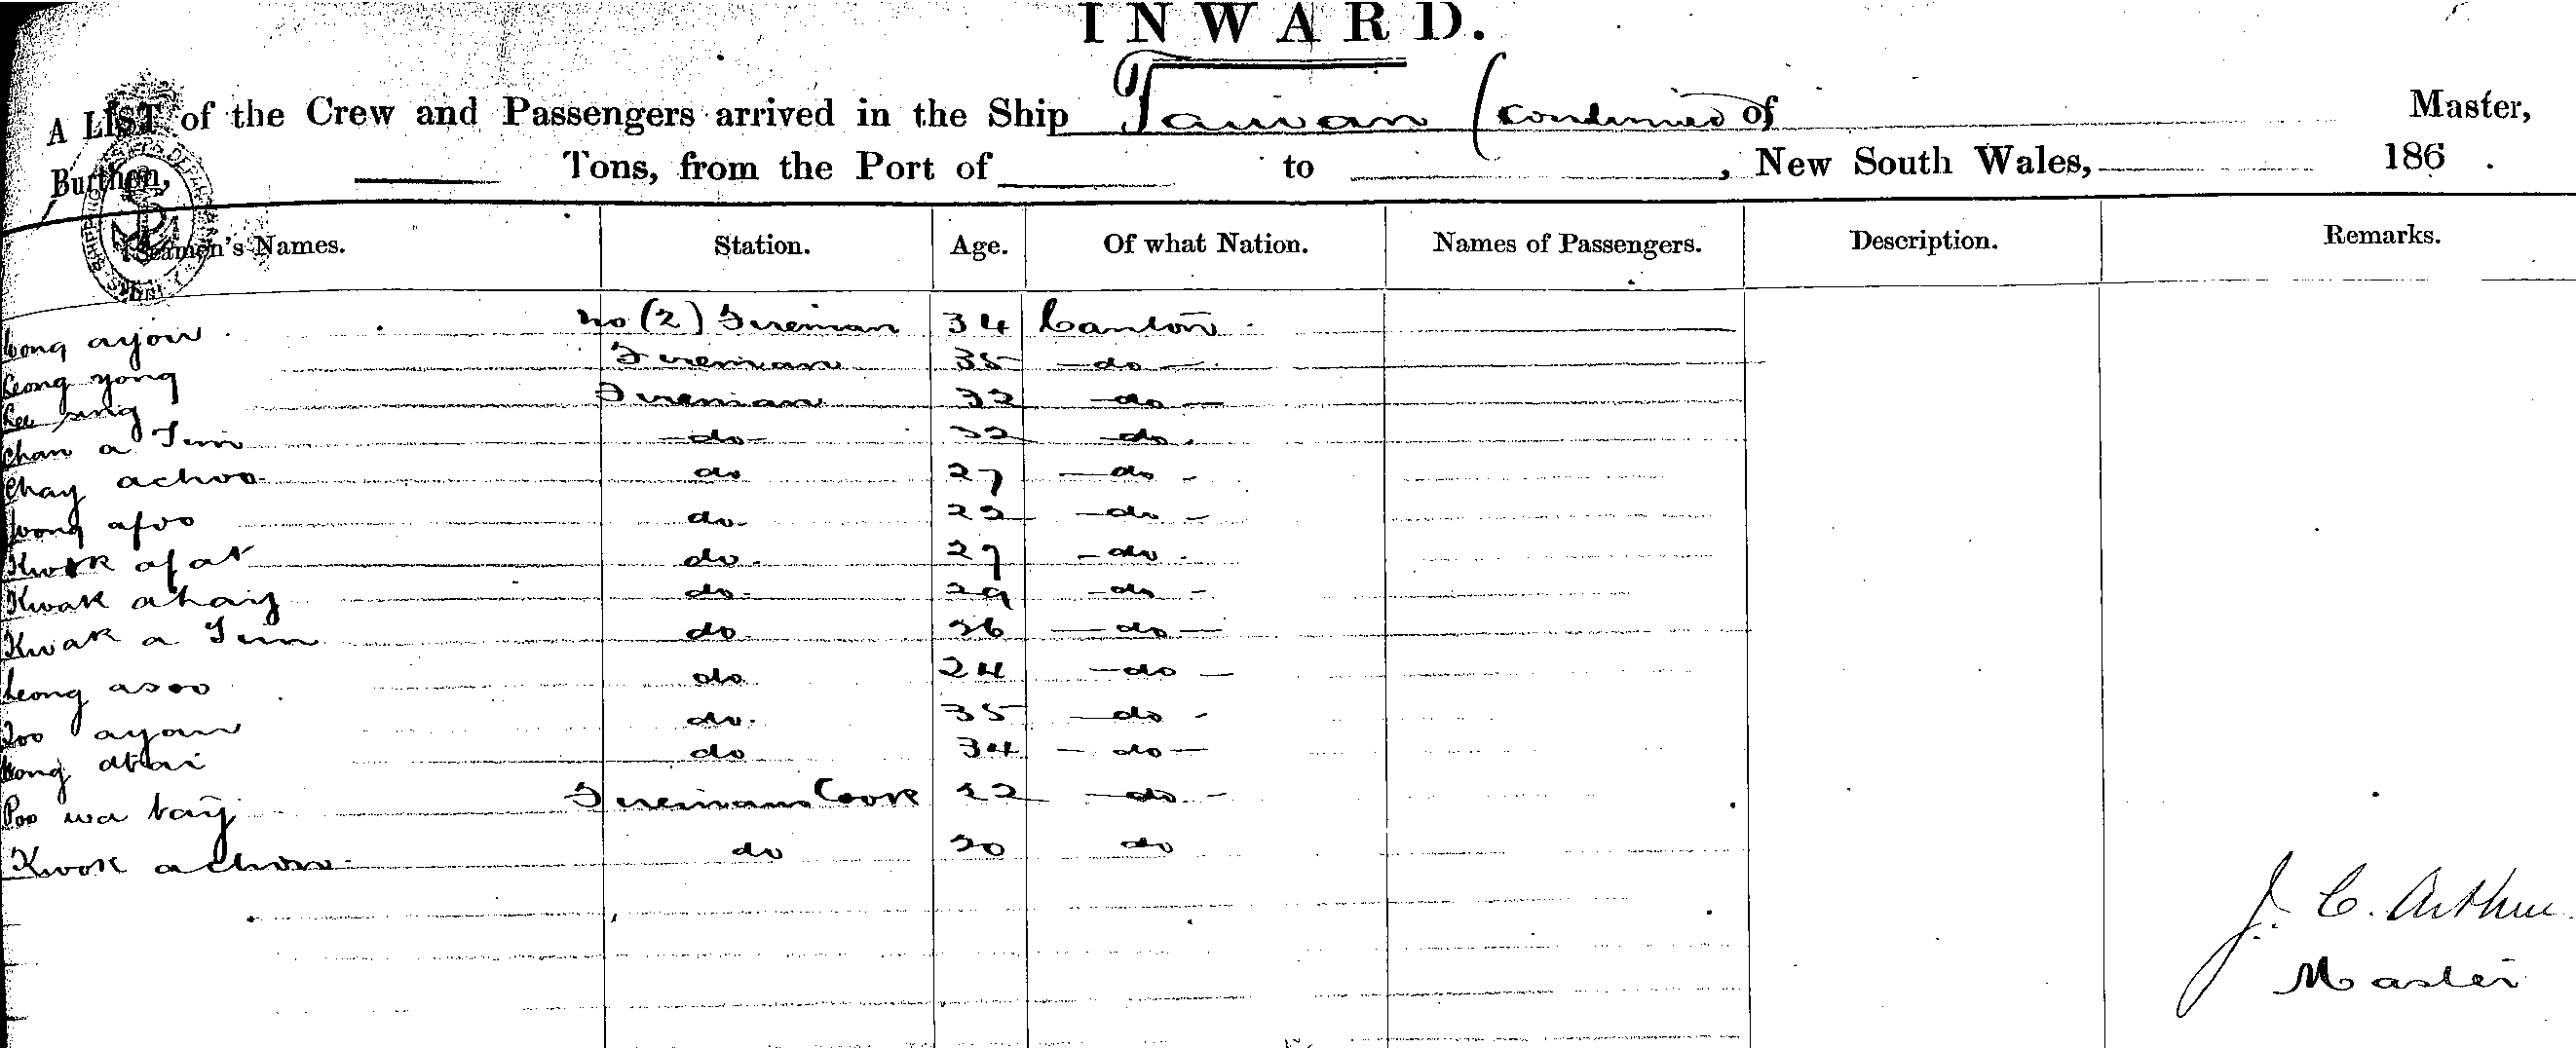 INWARD.
A LIST of the Crew and Passengers arrived in the Ship Taiwan (continued of Master,
Burthen, Tons, from the Port of to , New South Wales, 186 .
Seamen's Names. Station. Age. Of what Nation. Names of Passengers. Description. Remarks.
ayow no (2) Fireman 34 Canton
Leong yong Fireman 35 do
Lee sing Fireman 32 do
Chan a Tim do 32 do
Chay achoo do 27 do
afoo do 22 do
Kwok afat do 27 do
Kwak ahay do 29 do
Kwak a Tim do 26 do
Leong asoo do 24 do
ayow do 35 do
atai do 34 do
Poo wa tay Firemans Cook 22 do
Kwok achow do 20 do
J. C. Arthur
Master